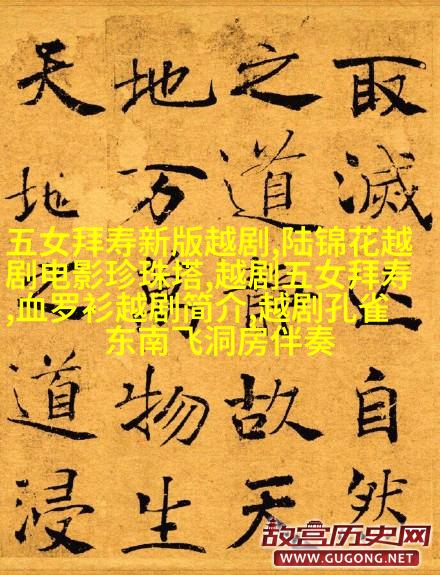 取滅自然
之道故天
地万物生
天地道浸
五女拜寿新版越剧,陆锦花越
剧电影珍珠塔,越剧五女拜寿
,血罗衫越剧简介,越剧孔雀
东南飞洞房伴奏
故宫历史网
WWW.GUGONG.NET